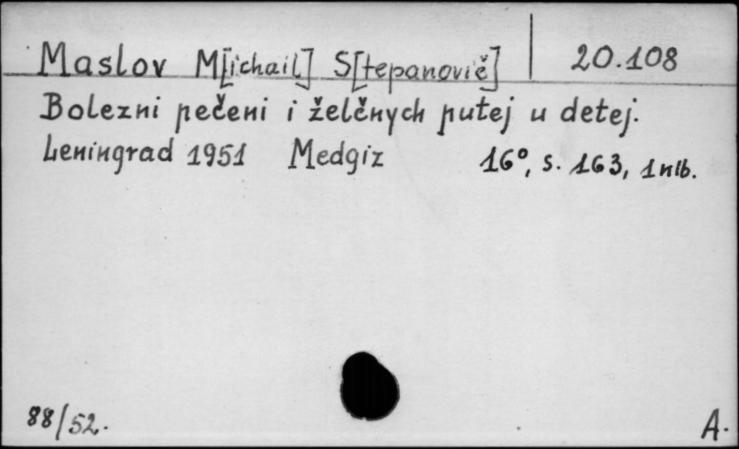 Maslov M[ichail] S[tepanovič] 20.108
Bolezni pečeni i želčnych putej u detej.
Leningrad 1951 Medgiz 16°, s. 163, 1 nlb.
88/52. A.